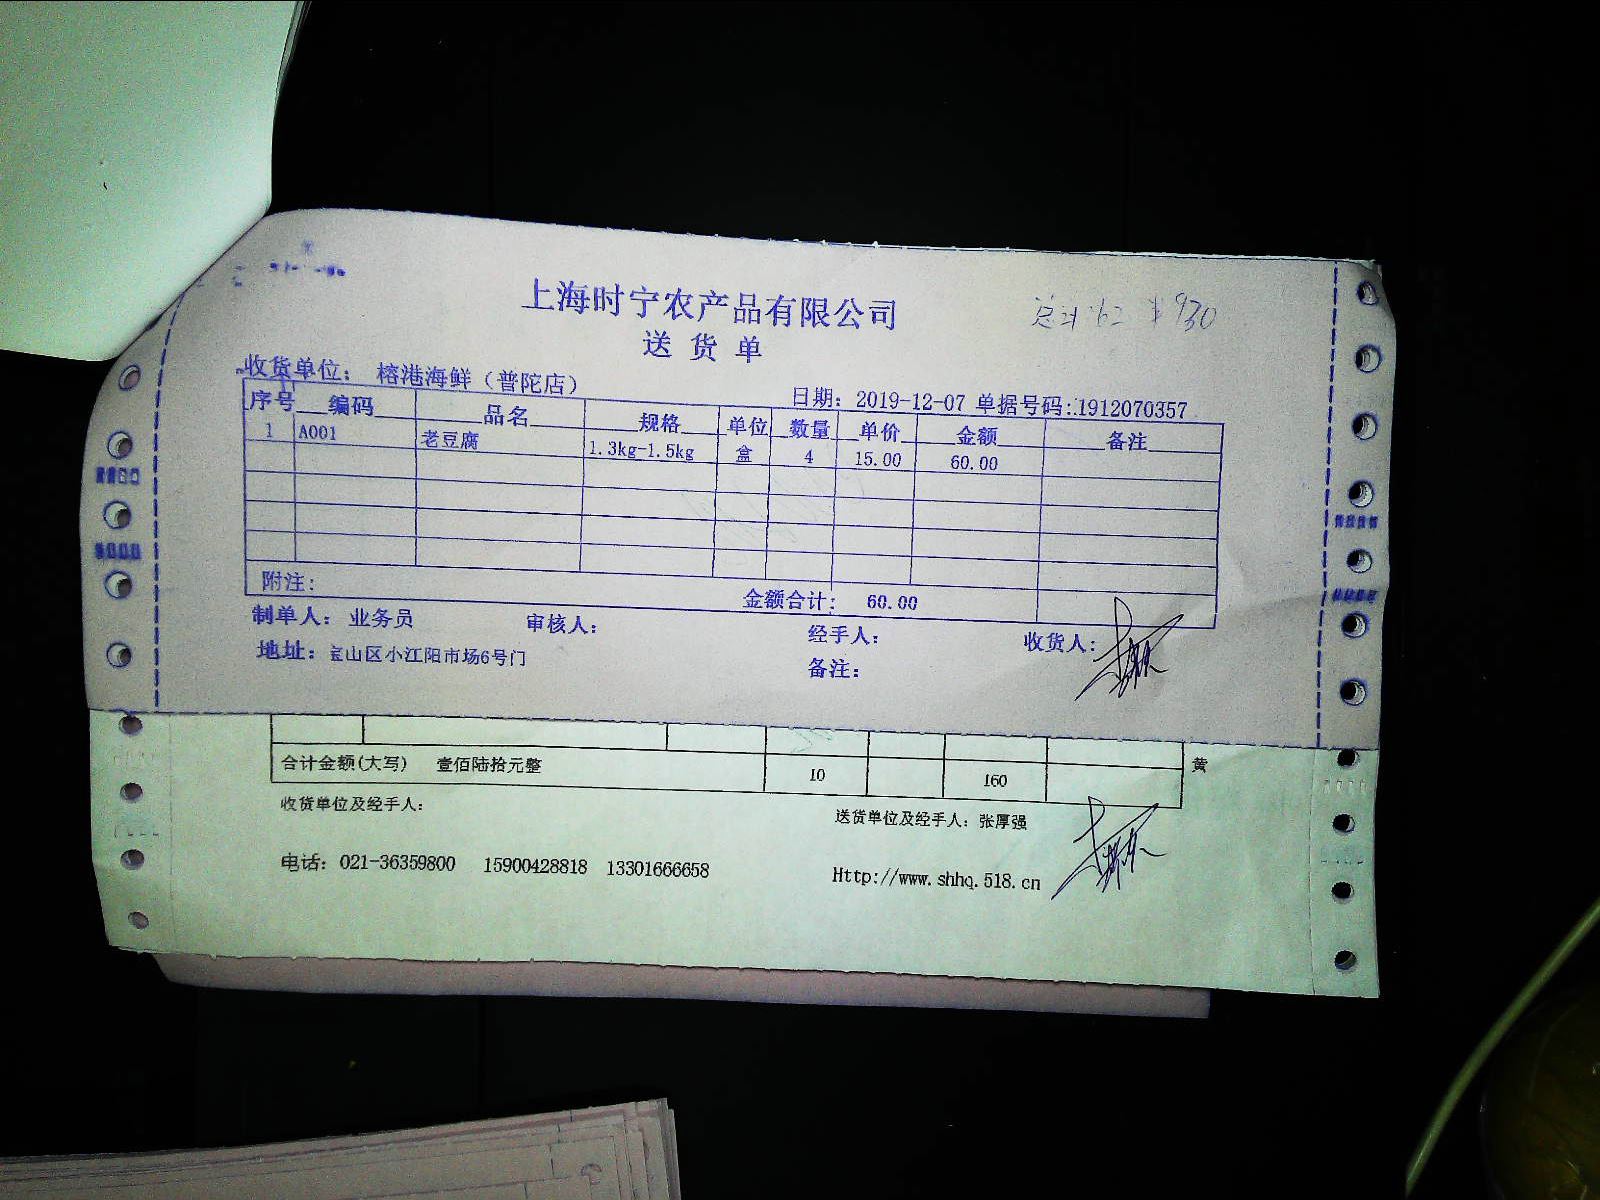 上海时宁农产品有限公司
总计:62 ¥930
送货单
收货单位： 榕港海鲜（普陀店）
日期：2019-12-07 单据号码:1912070357
序号 编码 品名 规格 单位 数量 单价 金额 备注
1 A001 老豆腐 1.3kg-1.5kg 盒 4 15.00 60.00
附注: 金额合计: 60.00
制单人: 业务员 审核人: 经手人: 收货人:
地址: 宝山区小江阳市场6号门 备注:
合计金额(大写) 壹佰陆拾元整 10 160 黄
收货单位及经手人: 送货单位及经手人: 张厚强
电话: 021-36359800 15900428818 13301666658 Http://www.shhq.518.cn